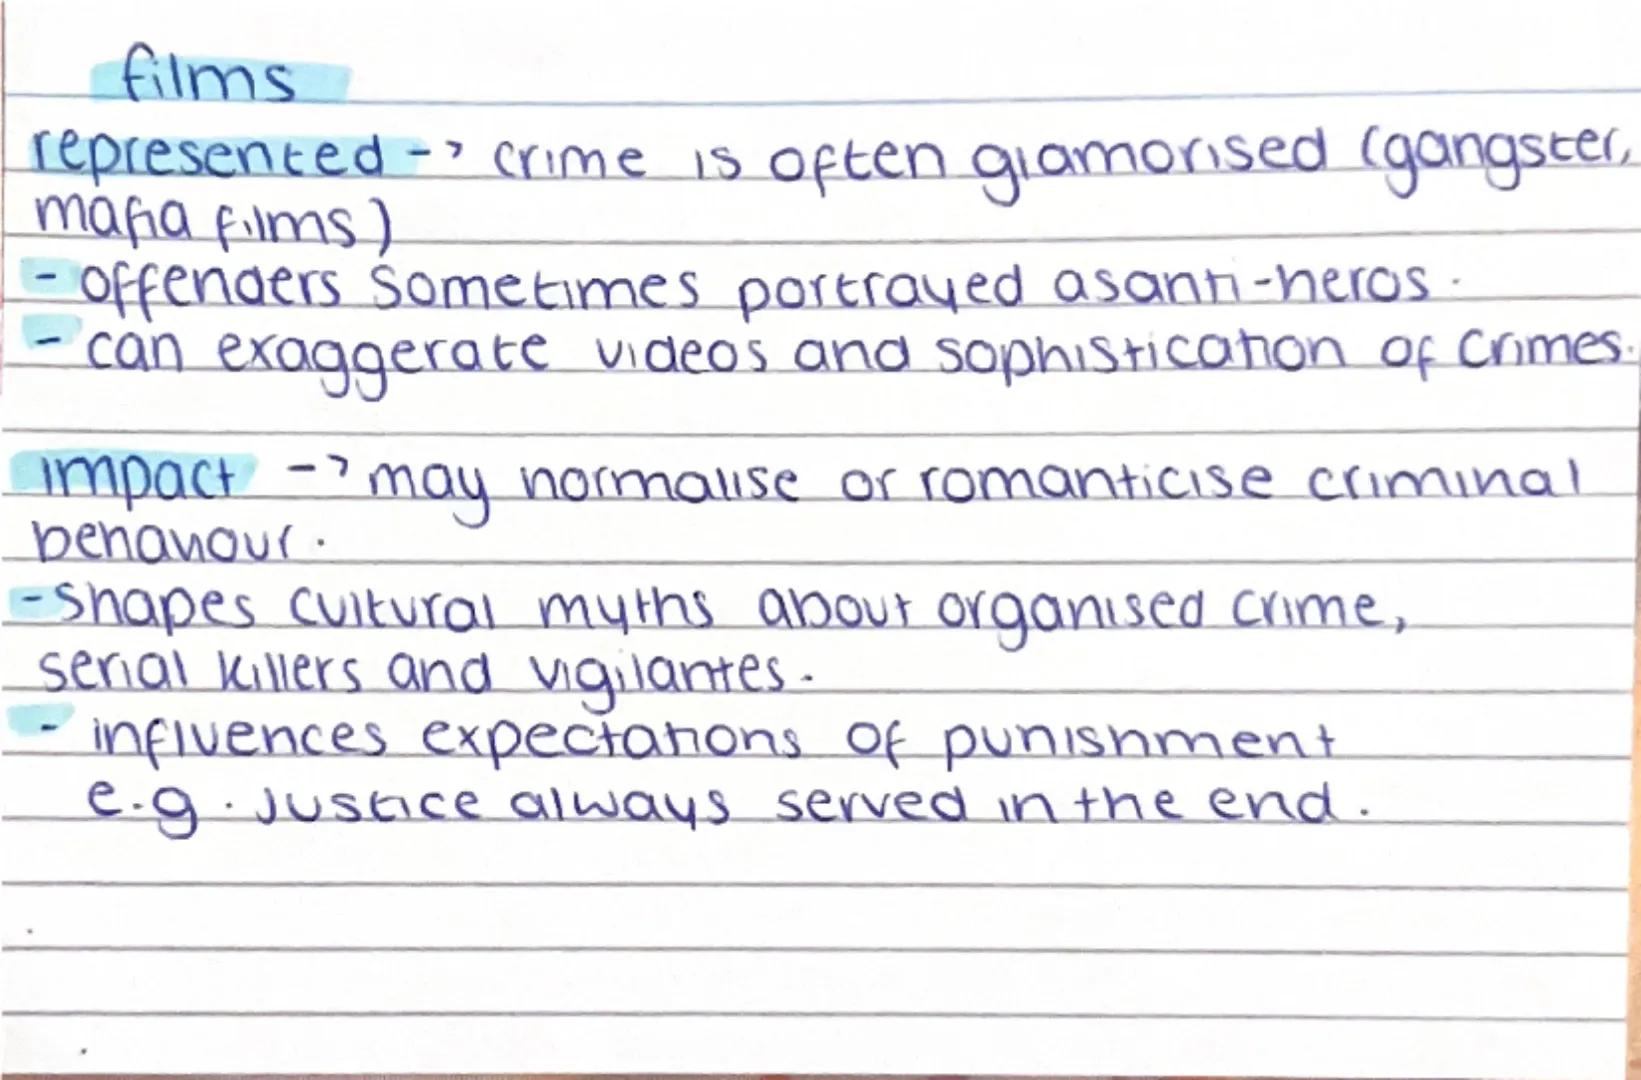 films
represented -> crime is often glamorised (gangster,
mafia films)
- offenders sometimes portrayed as anti-heros.
- can exaggerate videos and sophistication of crimes.
impact -> may normalise or romanticise criminal
behaviour.
- shapes cultural myths about organised crime,
serial killers and vigilantes.
- influences expectations of punishment
e.g. Justice always served in the end.